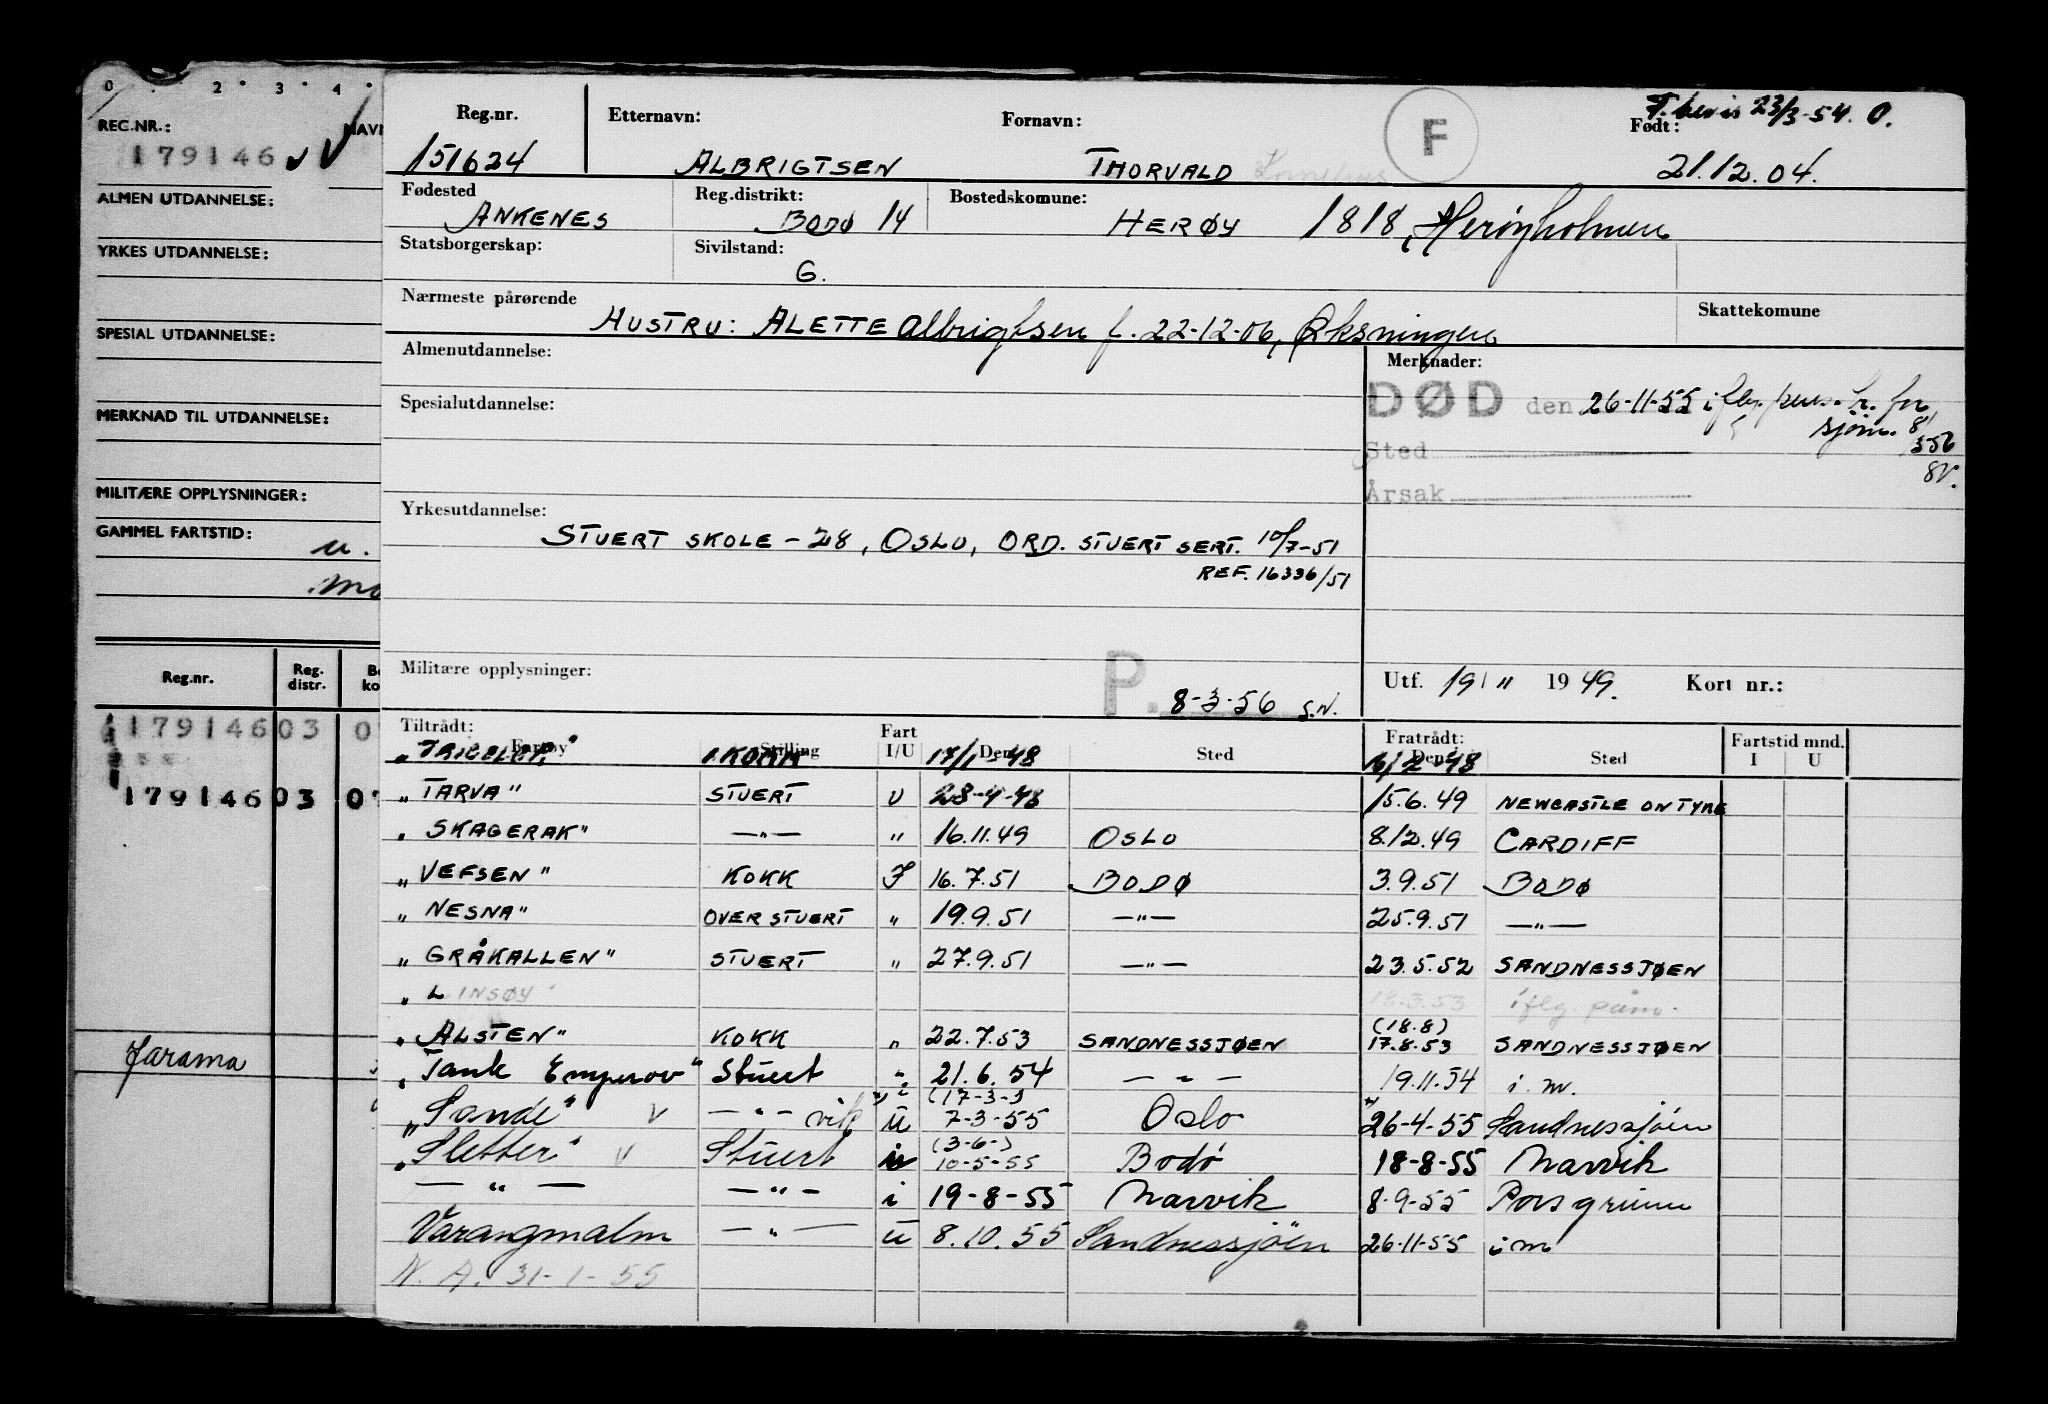 0 . 2 . 3 . 4 .
REG.NR.: NAVN
179146
ALMEN UTDANNELSE:
YRKES UTDANNELSE:
SPESIAL UTDANNELSE:
MERKNAD TIL UTDANNELSE:
MILITÆRE OPPLYSNINGER:
GAMMEL FARTSTID: u.
Reg.nr. Reg. distr.
179146 03 0
179146 03 07
Jarama
F. bevis 23/3-54. O.
Reg.nr. Etternavn: Fornavn: F Født:
151624 ALBRIGTSEN THORVALD 21.12.04.
Fødested Reg.distrikt: Bostedskomune:
ANKENES BODØ 14 HERØY 1818, Herøyholmen
Statsborgerskap: Sivilstand:
G.
Nærmeste pårørende Skattekomune
HUSTRU: ALETTE Albrigtsen f. 22-12-06, Øksningen
Almenutdannelse: Merknader:
DØD den 26-11-55 iflg. pens. tr. for
Spesialutdannelse: sjøm. 8/
Sted 356
SV.
Årsak
Yrkesutdannelse:
STUERT SKOLE - 28, OSLO, ORD. STUERT SERT. 10/7-51
REF. 16336/51
Militære opplysninger: Utf. 19/11 1949. Kort nr.:
P. 8-3-56 S.N.
Tiltrådt: Fart Fratrådt: Fartstid mnd.
Fartøy Stilling I/U Den Sted Den Sted I U
KOKK 17/1-48 6/2-48
"TARVA" STUERT U 28-4-48 15.6.49 NEWCASTLE ON TYNE
"SKAGERAK" —"— " 16.11.49 OSLO 8.12.49 CARDIFF
"VEFSEN" KOKK I 16.7.51 BODØ 3.9.51 BODØ
"NESNA" OVERSTUERT " 19.9.51 —"— 25.9.51 —"—
"GRÅKALLEN" STUERT " 27.9.51 —"— 23.5.52 SANDNESSJØEN
"LINSØY" 18.3.53 iflg. påm.
(18.8)
"ALSTEN" KOKK " 22.7.53 SANDNESSJØEN 17.8.53 SANDNESSJØEN
"Tank Emperor" Stuert " 21.6.54 —"— 19.11.54 i.m.
(17-3-)
"Sande" V —"— vik ü 7-3-55 Oslo 26-4-55 Sandnessjöen
(3-6-)
"Sletter" V Stuert u 10-5-55 Bodö 18-8-55 Narvik
—"— —"— i 19-8-55 Narvik 8-9-55 Porsgrunn
Varangmalm —"— ü 8.10.55 Sandnessjöen 26-11-55 i m
N. A. 31-1-55